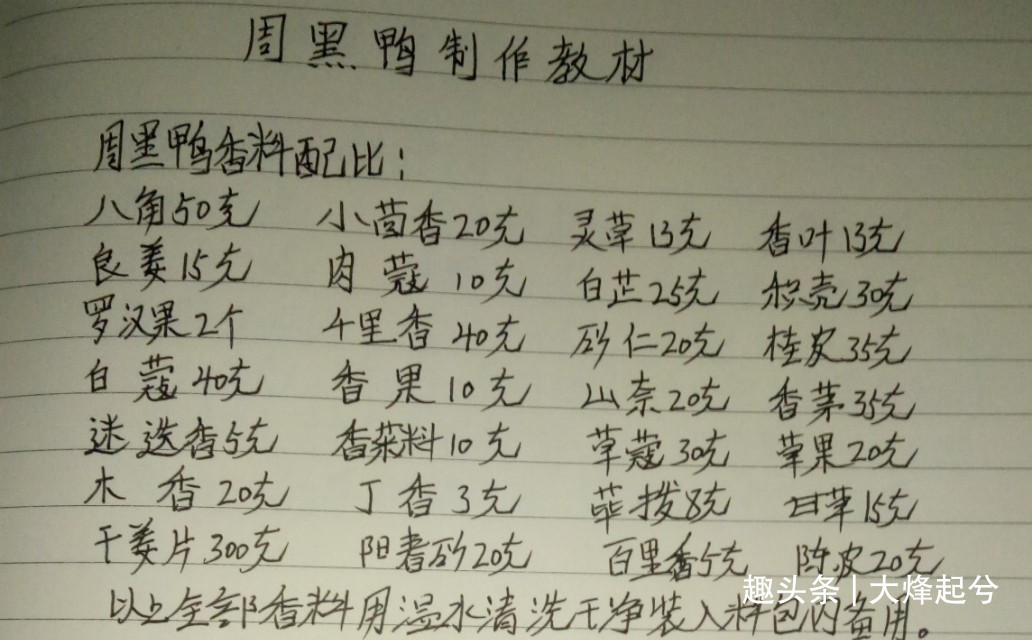 周黑鸭制作教材
周黑鸭香料配比:
八角50克 小茴香20克 灵草13克 香叶13克
良姜15克 肉蔻10克 白芷25克 枳壳30克
罗汉果2个 千里香40克 砂仁20克 桂皮35克
白蔻40克 香果10克 山奈20克 香茅35克
迷迭香5克 香菜料10克 草蔻30克 草果20克
木香20克 丁香3克 荜拨8克 甘草15克
干姜片300克 阳春砂20克 百里香5克 陈皮20克
以上全部香料用温水清洗干净装入料包内备用。
趣头条 | 大烽起兮